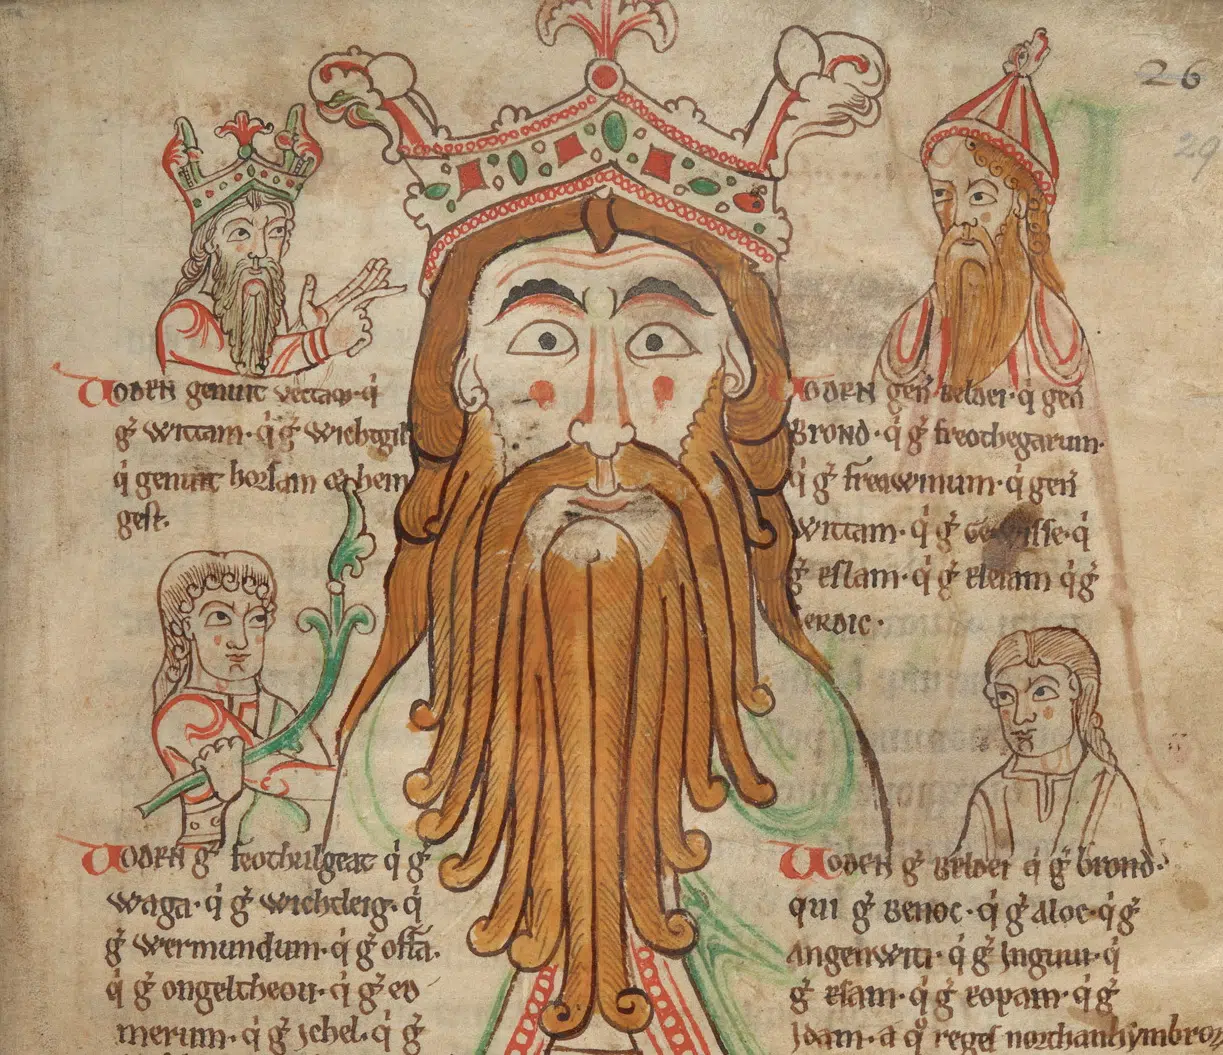 26
29
Woden genuit vectam · q̇
g̊ wittam · q̇ g̊ wichtgil
q̇ genuit horsam & hem
gest.
Woden gen̄ beldei · q̇ gen̄
Brond · q̇ g̊ freothegarum ·
q̇ g̊ freawinum · q̇ gen̄
wittam · q̇ g̊ Gewisse · q̇
g̊ eslam · q̇ g̊ eleiam q̇ g̊
Cerdic ·
Woden g̊ feothulgeat q̇ g̊
waga · q̇ g̊ wichtleig · q̇
g̊ wermundum · q̇ g̊ offā.
q̇ g̊ ongeltheou · q̇ g̊ eo
merum · q̇ g̊ Ichel · q̇ g̊
Woden g̊ Beldei q̇ g̊ brond ·
qui g̊ Benoc · q̇ g̊ aloc · q̇ g̊
Angenwiti · q̇ g̊ Inguui · q̇
g̊ esam · q̇ g̊ eopam · q̇ g̊
Idam · a q̊ reges northanhymbror